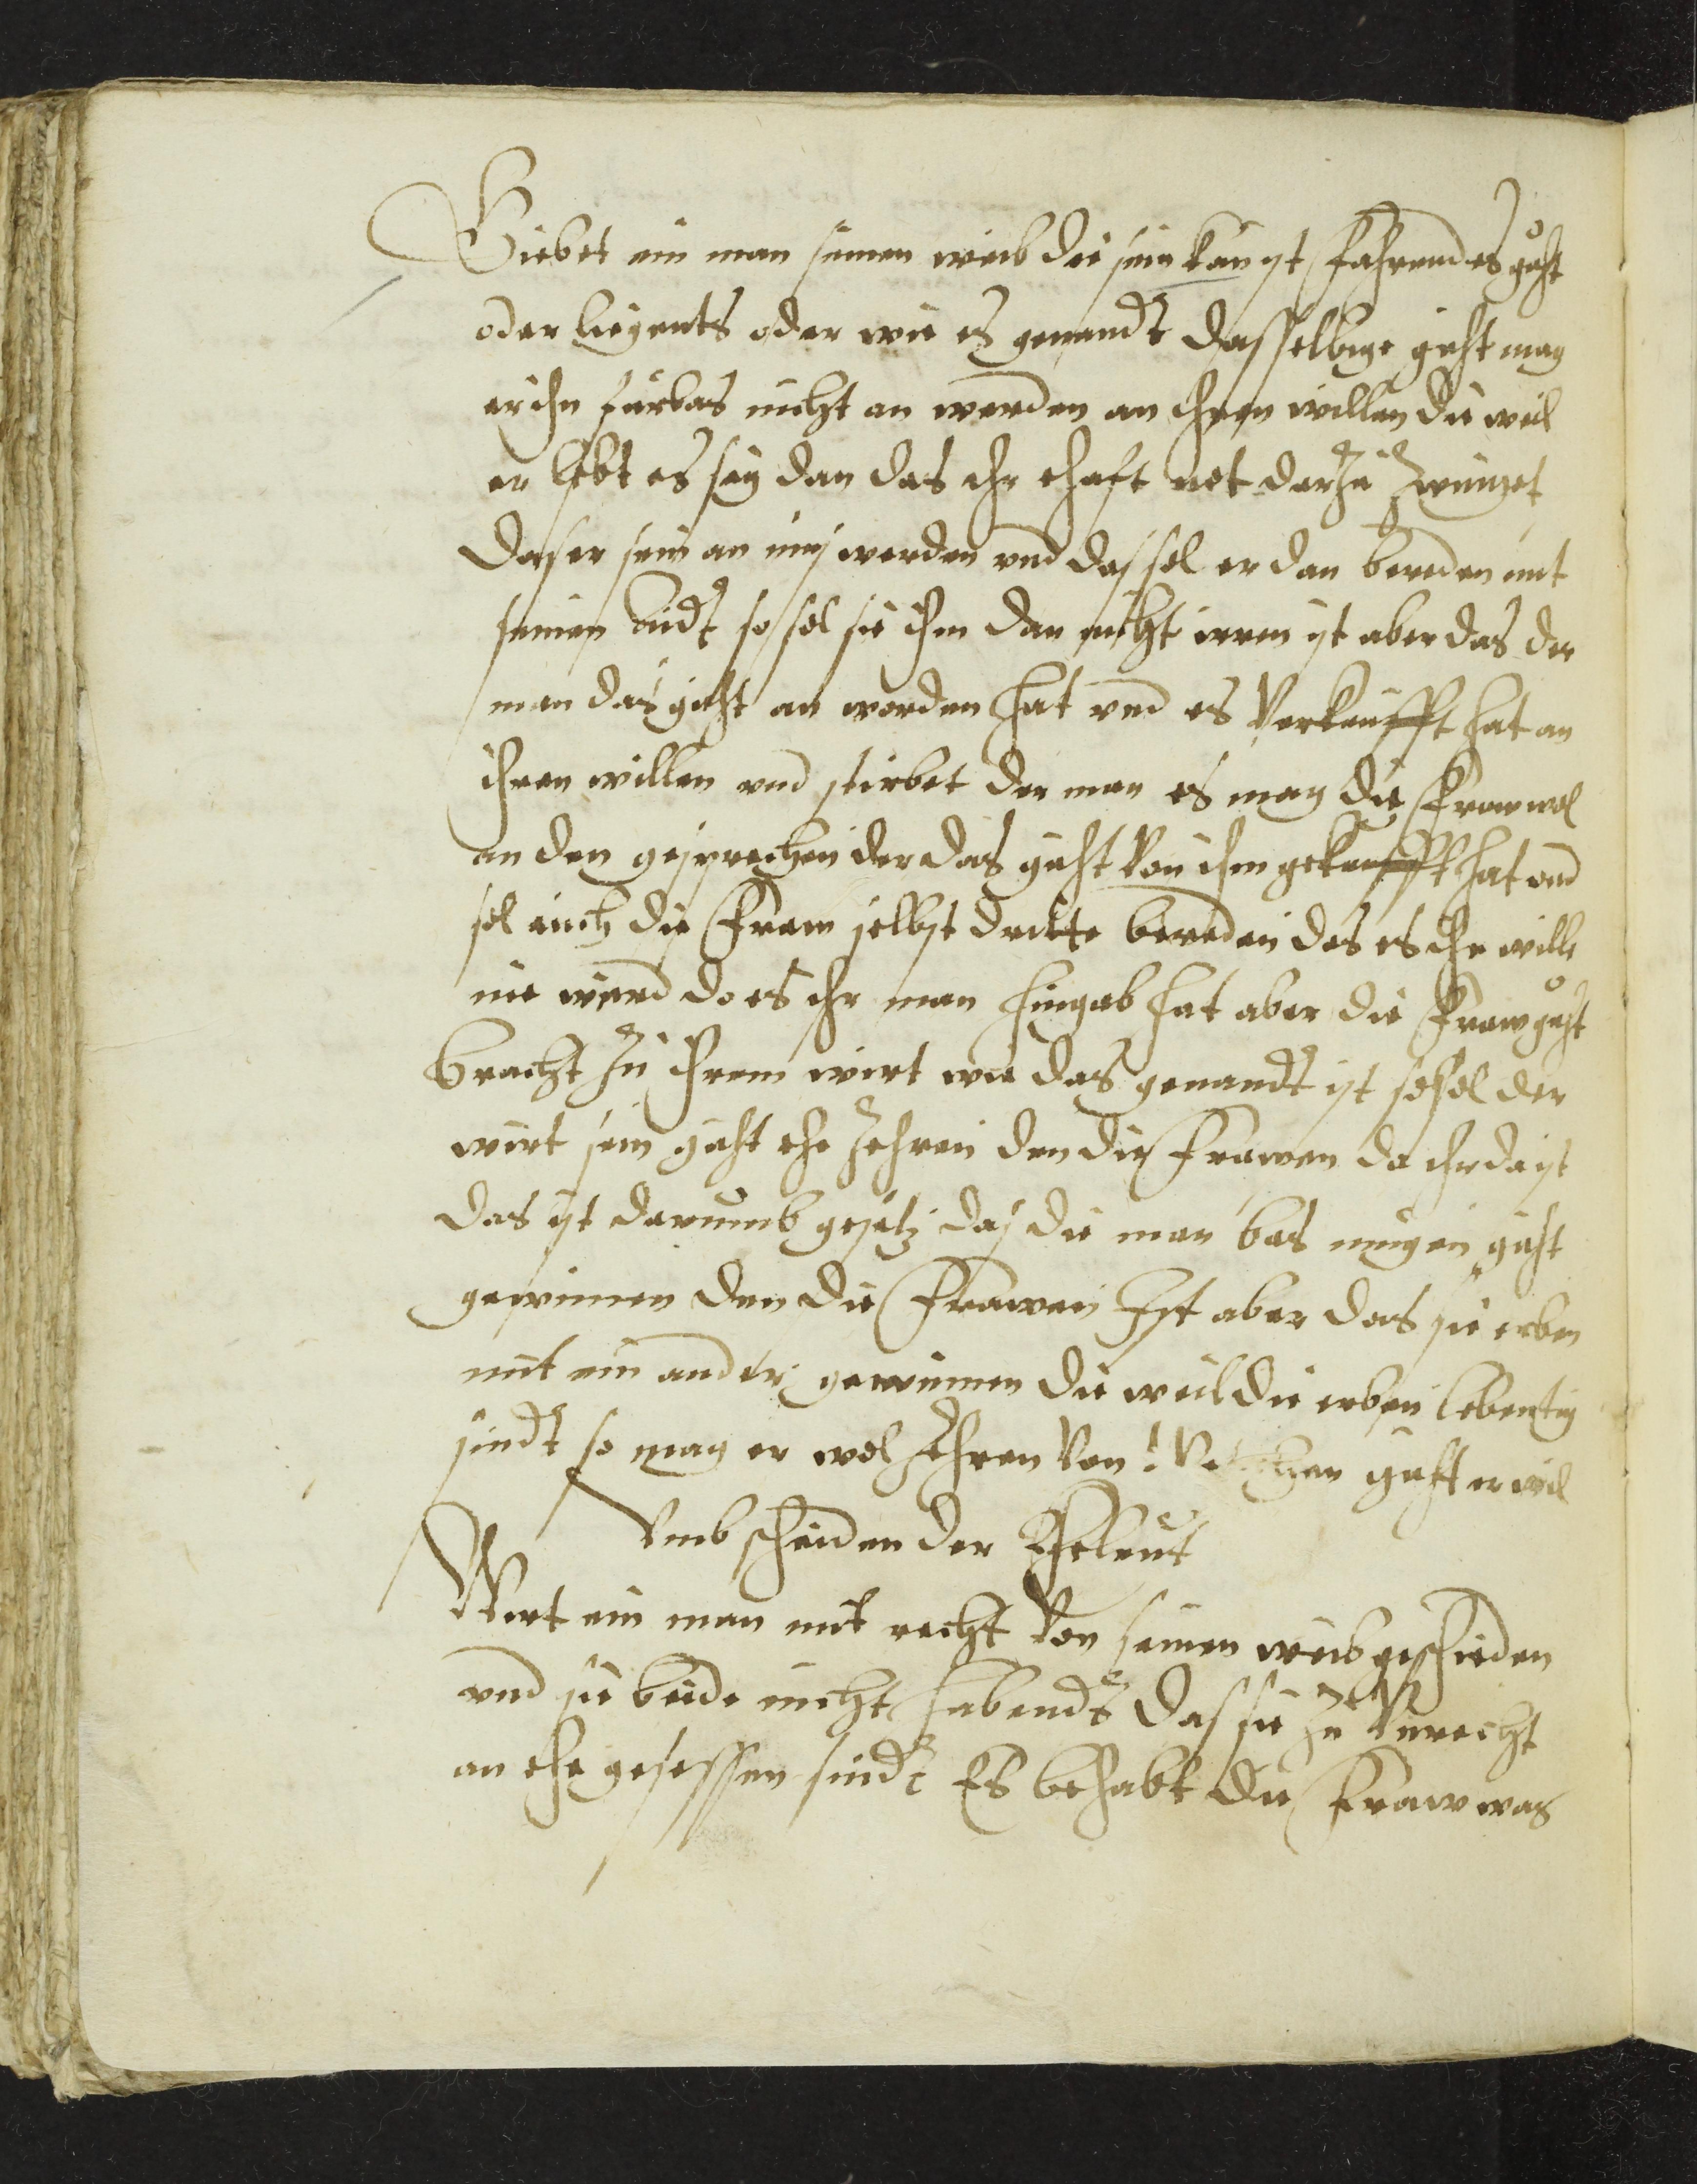 Giebet ein man seinen weib die sein kan ist fahrendes guht
oder liegents oder wie es genandt dasselbige guht mag
er ihn fürbas nicht an werden an ihren willen die weil
er lebt es sey dan das ihr ehaft not darzu zwinget
das er sein an mus werden vnd das sol er dan bereden mit
seinen eidt so sol sie ihm dan nicht irren ist aber das der
man das guht an worden hat vnd es verkaufft hat an
ihren willen vnd stirbet der man es mag die fraw wol
an den gesprechen der das guht von ihm gekaufft hat vnd
sol auch die fraw selbst dritte bereden das es ihr wille
nie wurd do es ihr man hingab hat aber die fraw guht
bracht zu ihrem wirt wie das genandt ist so sol der
wirt sein guht ehe zehren den die frawen da ihr da ist
das ist darumb gesetz das die man bas mugen guht
gewinnen den die frawen Ist aber das sie erben
mit ein ander gewinnen die weil die erben lebentig
sindt so mag er wol zehren von guht er wil
Vmb scheiden der Eheleut
Wirt ein man mit recht von seinen weib geschieden
vnd sie beide nicht habendt das sie zu Vnrecht
an ehe gesessen sindt Es behabt die fraw was